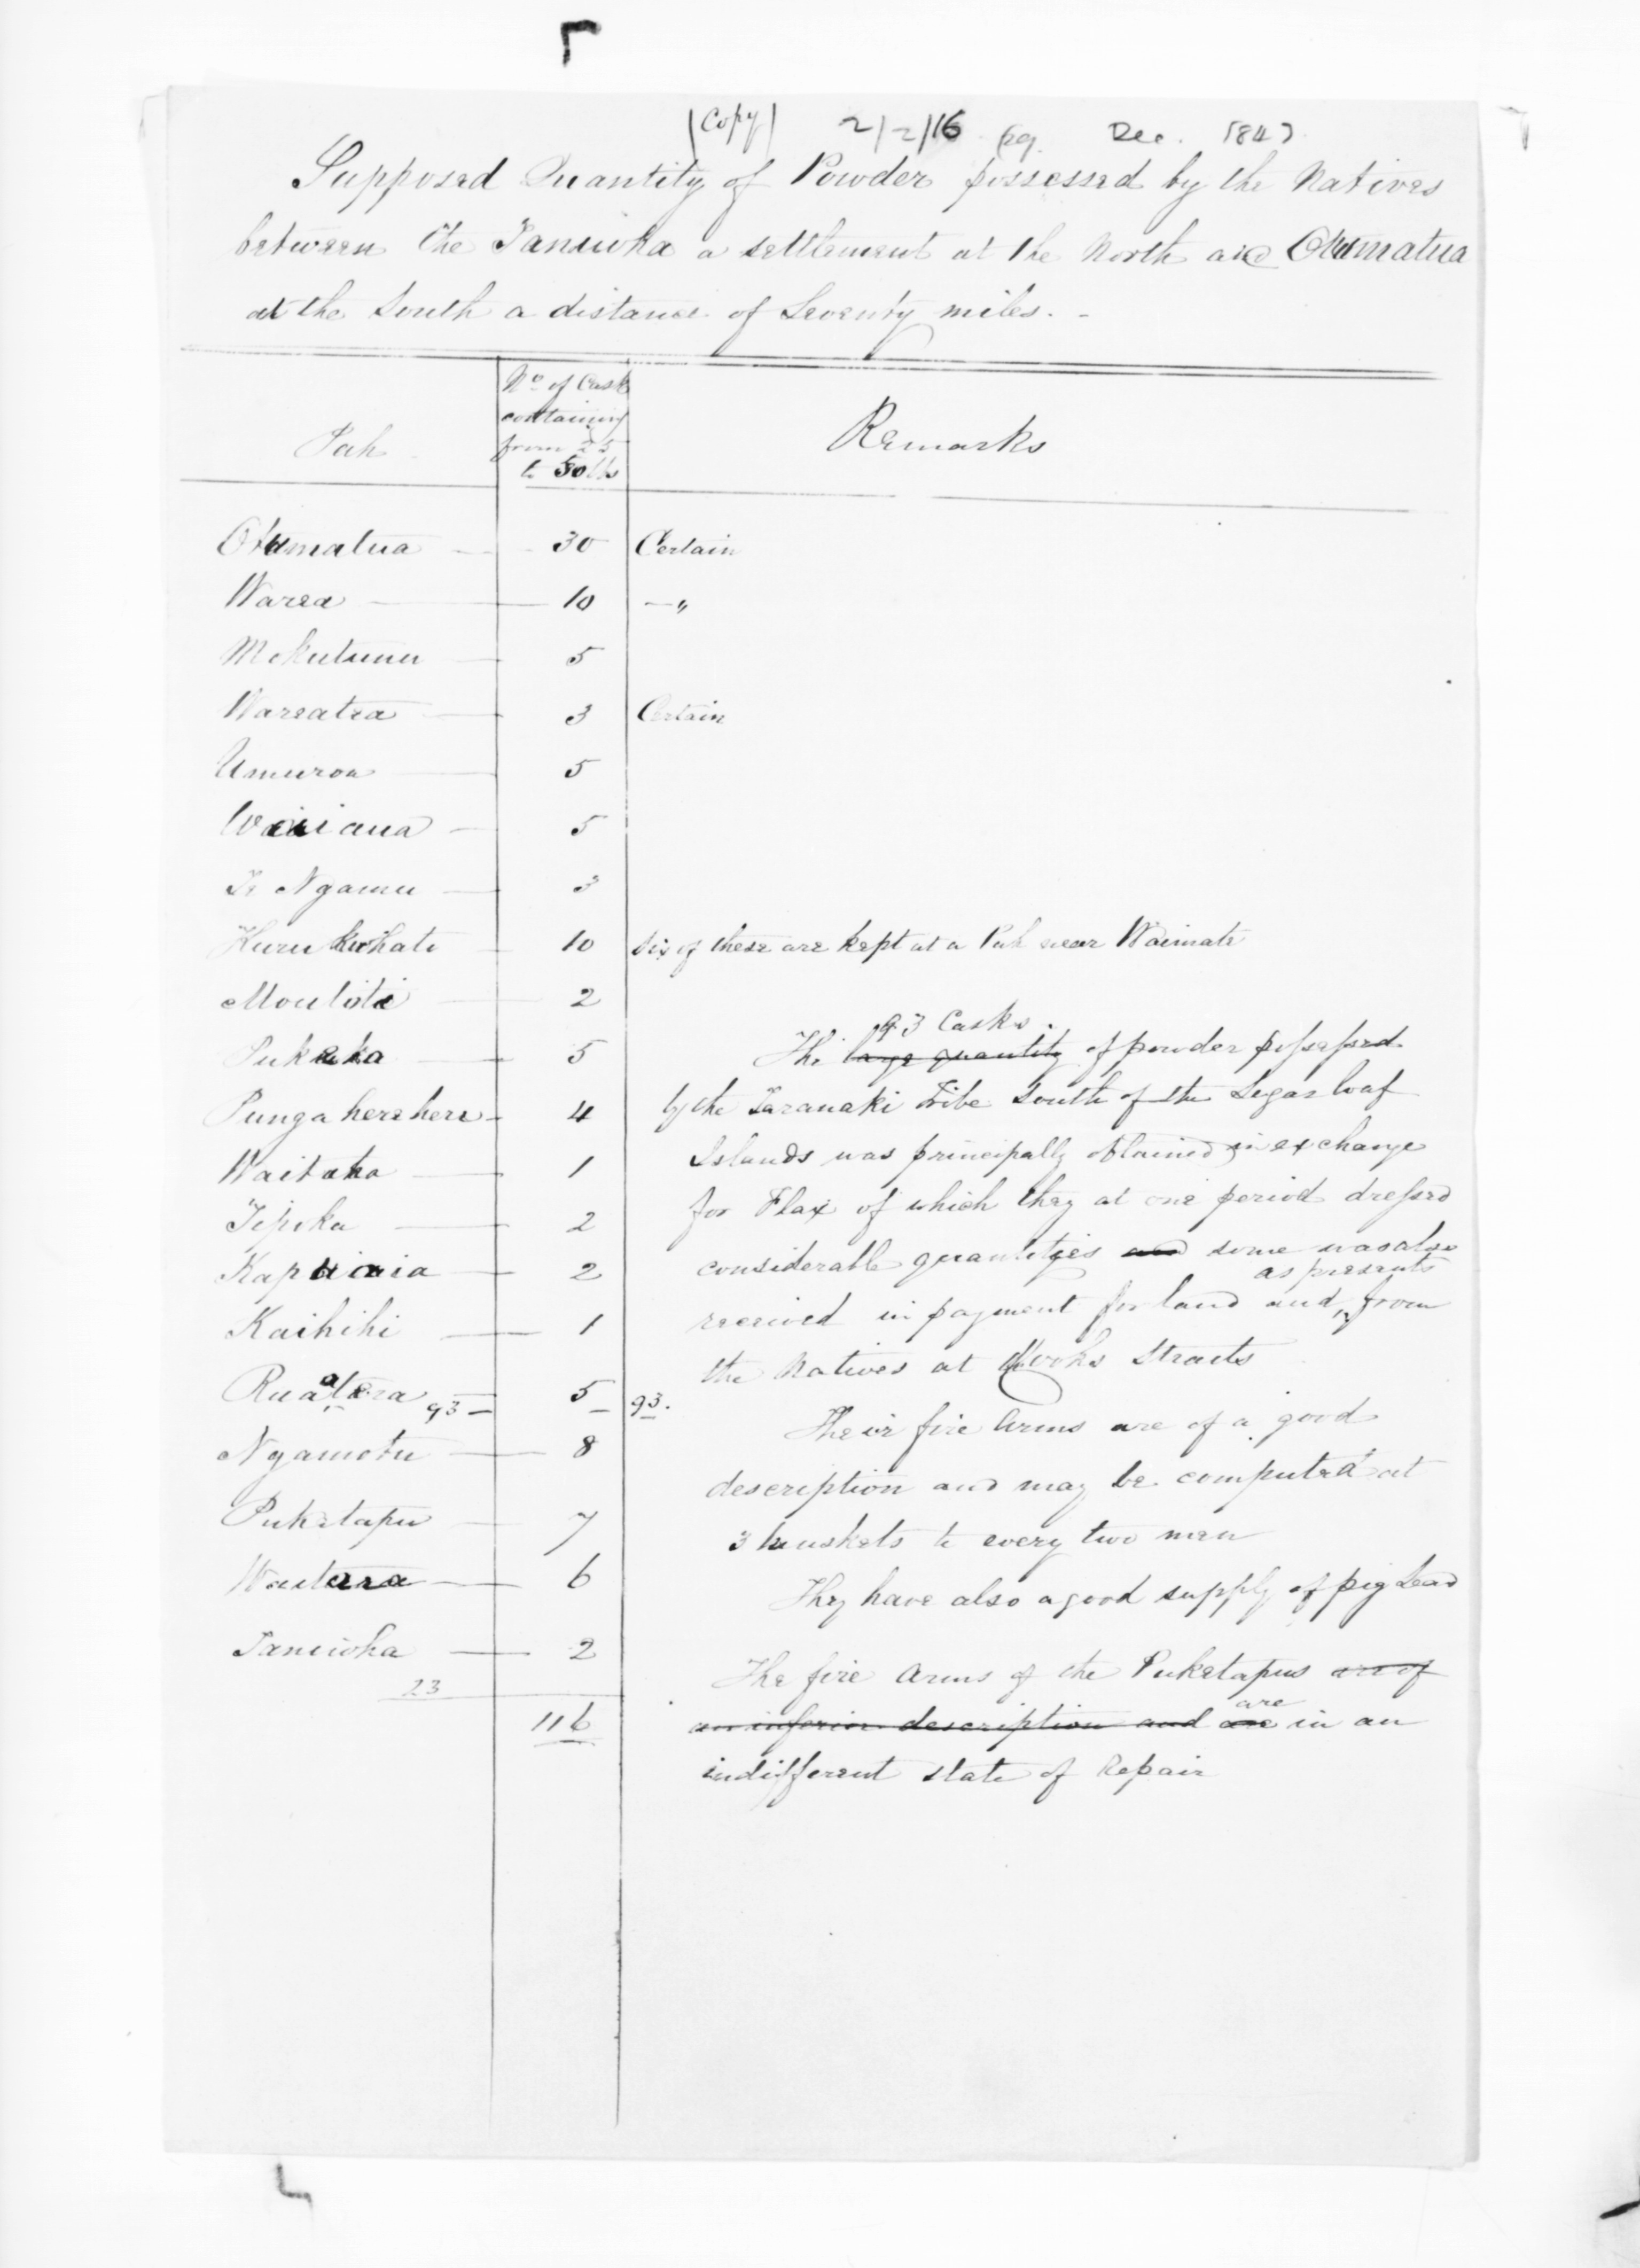 (Copy) 2/2/16 Dec. 1847
Supposed Quantity of Powder possessed by the Natives
between the Taniwha a settlement at the North and Okumatua
at the South a distance of Seventy miles. -
Pah
No of Cask
containing
from 25
to 50 lbs
Remarks
Okumatua 30 Certain
Warea 10 — "
Mokutunu 5
Wareatea 3 Certain
Umuroa 5
Wairiaua 5
Te Ngamu 3
Huru kohati 10 Six of these are kept at a Pah near Waimate
Moutoti 2
93 Casks.
Pukaka 5 The large quantity of powder possessed
Punga herehere 4 by the Taranaki tribe South of the Sugar loaf
Waitaha 1 Islands was principally obtained in exchange
Tipoka 2 for Flax of which they at one period dressed
Kapuiaia 2 considerable quantities and some was also
as presents
Kaihihi 1 received in payment for land and from
the Natives at Cooks Straits
Ruaatara 93 — 5 93.
Their fire Arms are of a good
Ngamotu 8
description and may be computed at
Puketapu 7 3 muskets to every two men
Waitara 6 They have also a good supply of pig Lead
Taniwha 2 The fire Arms of the Puketapus are of
23
are
116 an inferior description and are in an
indifferent state of Repair